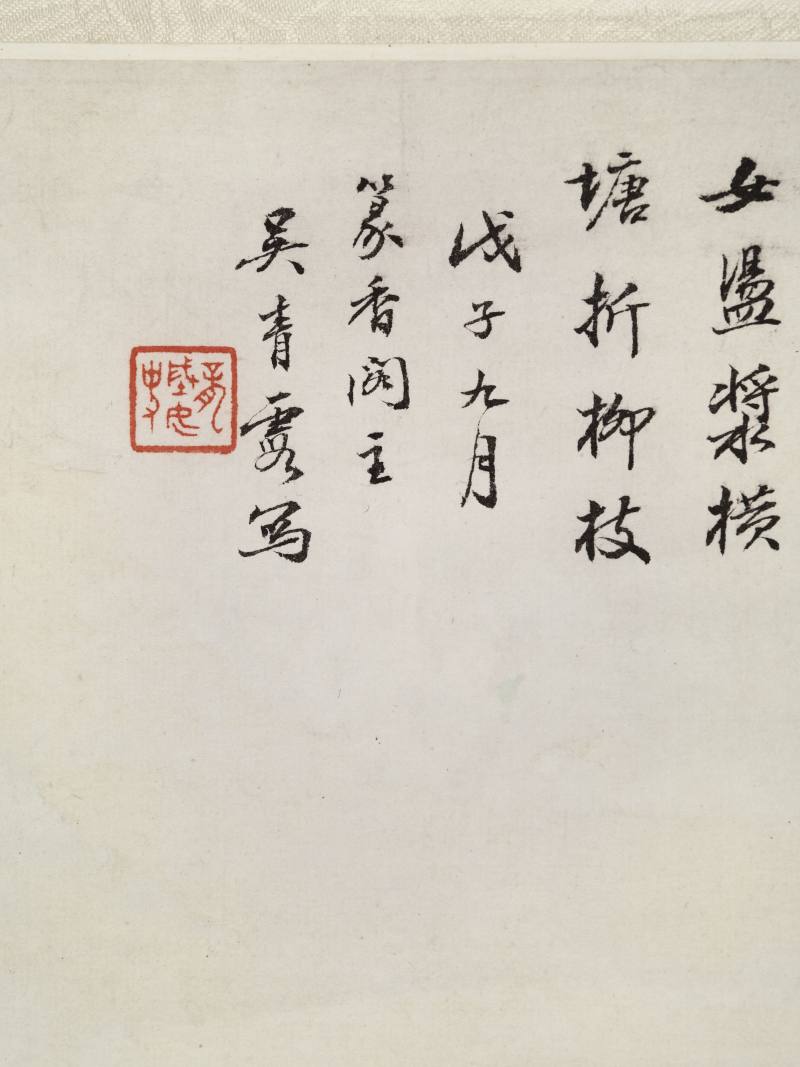 女盪槳橫
塘折柳枝
戊子九月
篆香閣主
吳青霞写